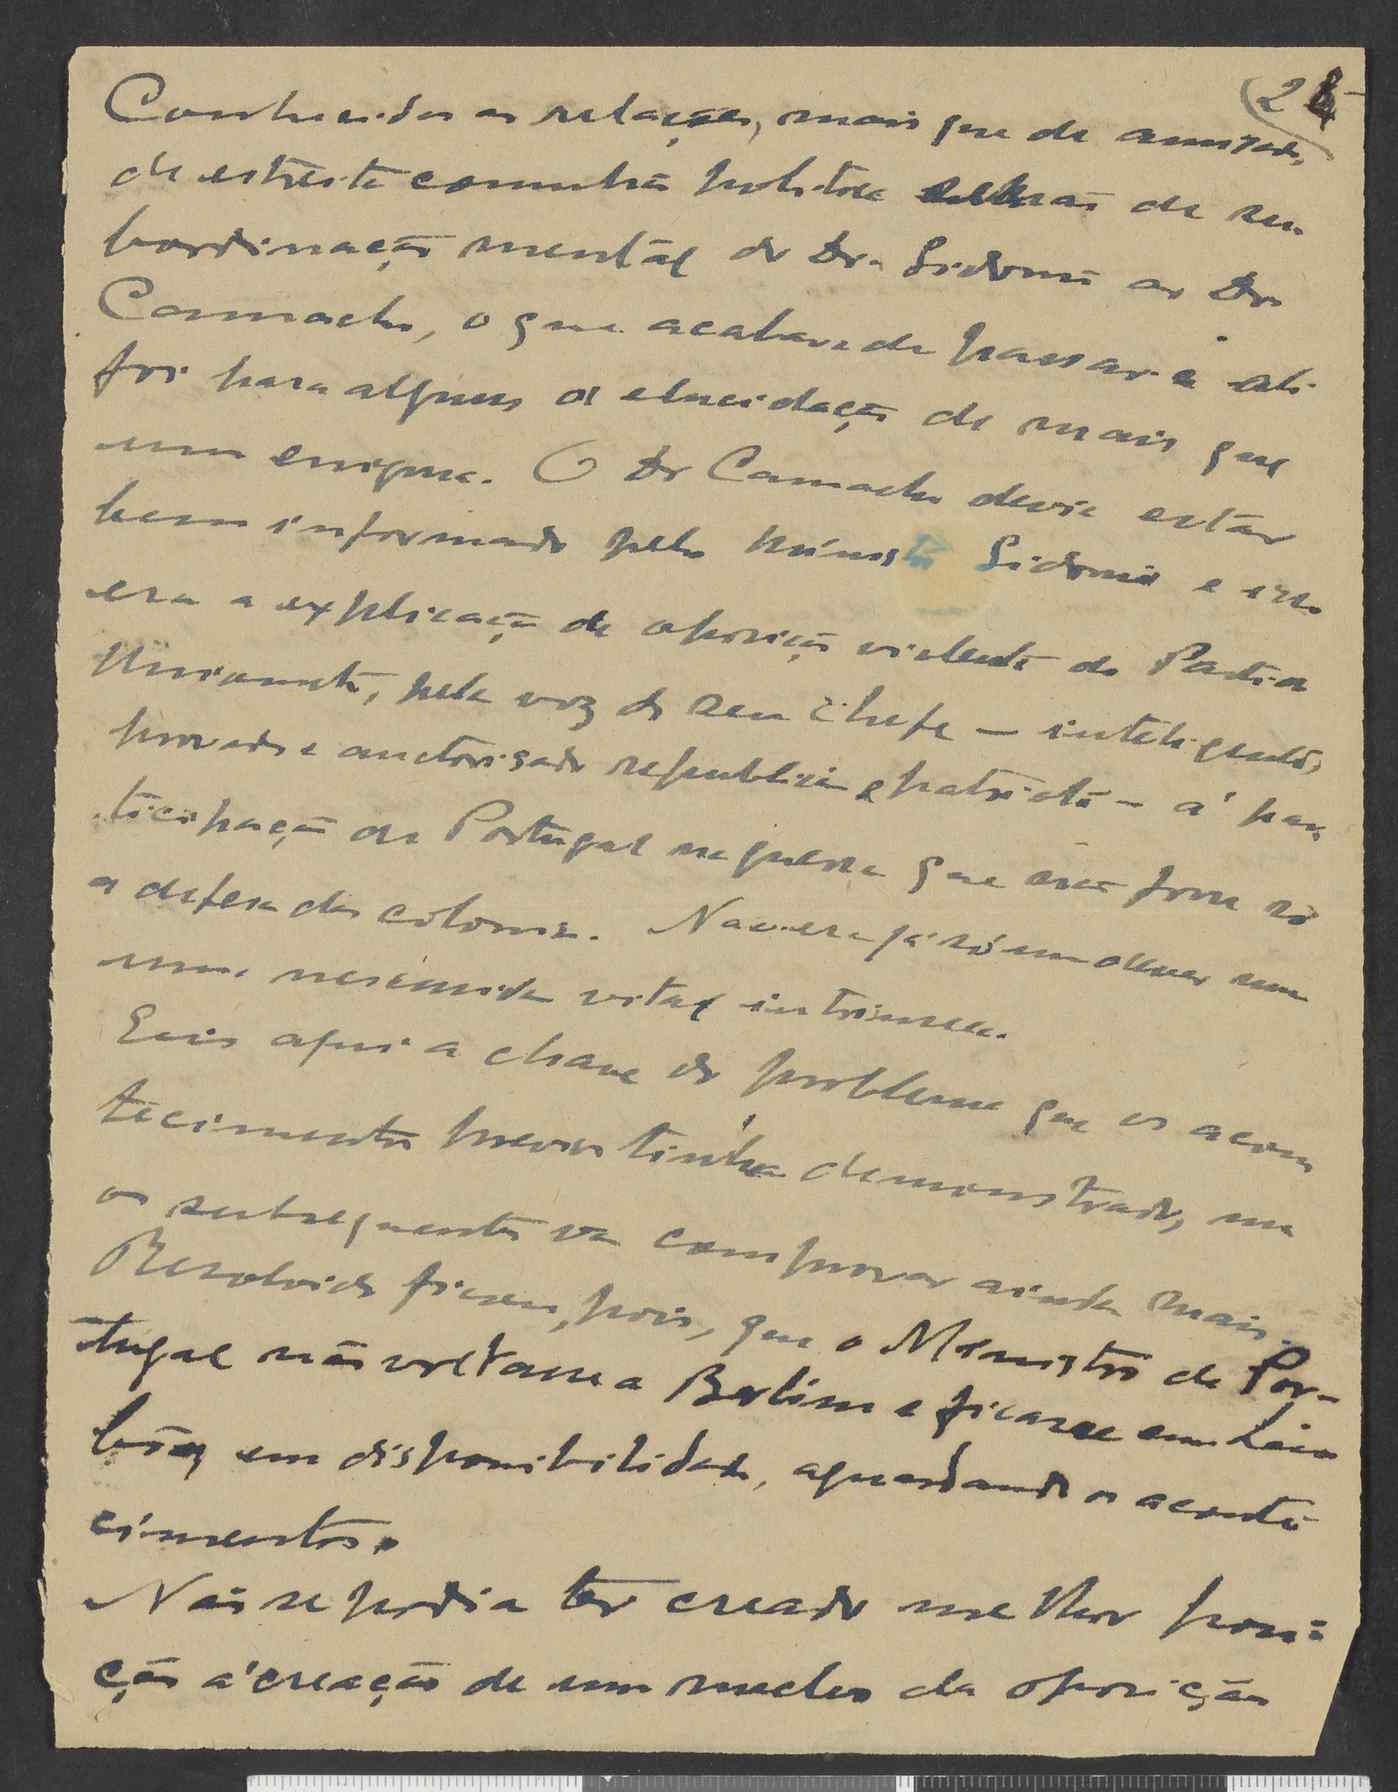 (24
Conhecidas as relações, mais que de amizade,
de estreita comunhão politica senão de su-
bordinação mental do Dr. Sidonio ao Dr
Camacho, o que acabava de passar-se ali
foi para alguns a elucidação de mais que
um enigma. O Dr Camacho devia estar
bem informado pelo Ministro Sidonio e isso
era a explicação da oposição violenta do Partido
Unionista, pela voz do seu chefe — inteligente,
provado e auctorisado republicano e patriota — á par
ticipação de Portugal na guerra que não fosse só
a defesa das colonias. Não era já só um dever mas
uma necessidade vital intrinseca.
Eis aqui a chave do problema que os acon
tecimentos previos tinham demonstrado, mas
os subsequentes vão comprovar ainda mais.
Resolvido ficou, pois, que o Ministro de Por-
tugal não voltasse a Berlim e ficasse em Lis
bôa, em disponibilidade, aguardando os aconte
cimentos.
Não se podia ter creado melhor posi=
ção á creação de um nucleo da oposição